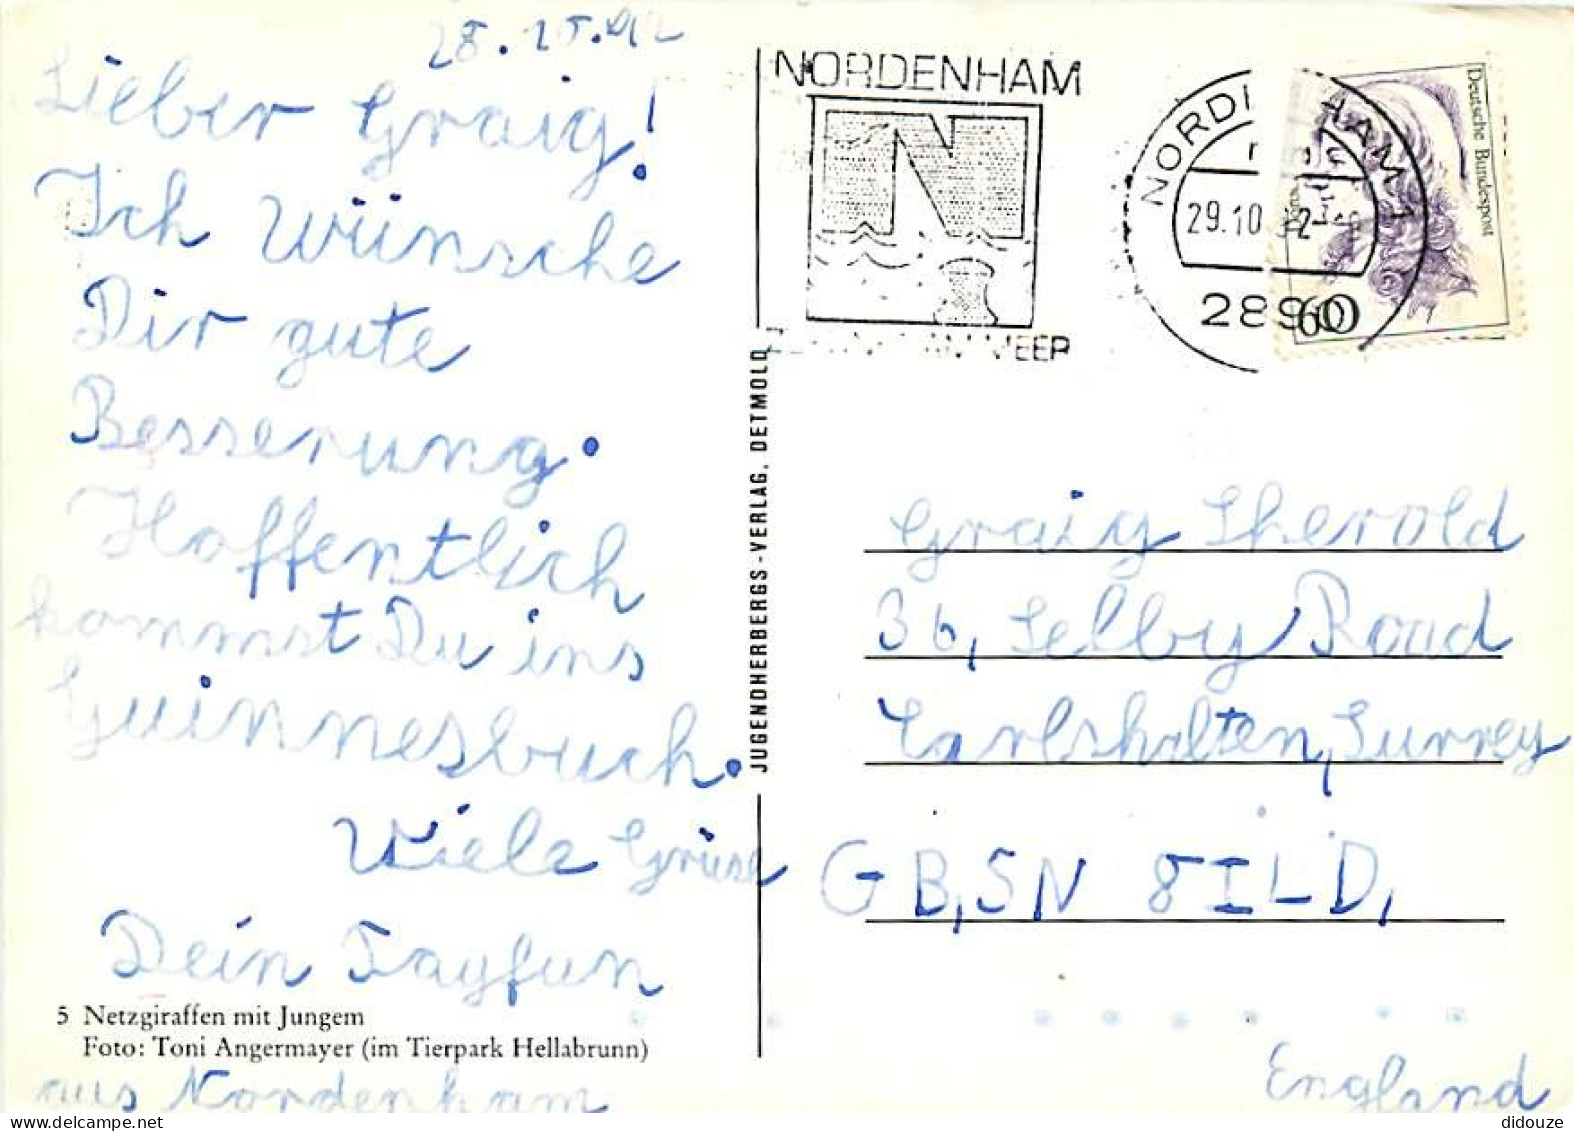 28.10.92
Lieber Graig!
Ich wünsche
Dir gute
Besserung.
Hoffentlich
kommst Du ins
Guinnesbuch.
Viele Grüse
Dein Tayfun
5 Netzgiraffen mit Jungem
Foto: Toni Angermayer (im Tierpark Hellabrunn)
aus Nordenham
JUGENDHERBERGS-VERLAG, DETMOLD
NORDENHAM
N
AM MEER
NORDENHAM 1
29.10
2890
Deutsche Bundespost
60
Graig Sherold
36, Selby Road
Carlshalten, Surrey
GB, SN 8ILD,
England
didouze